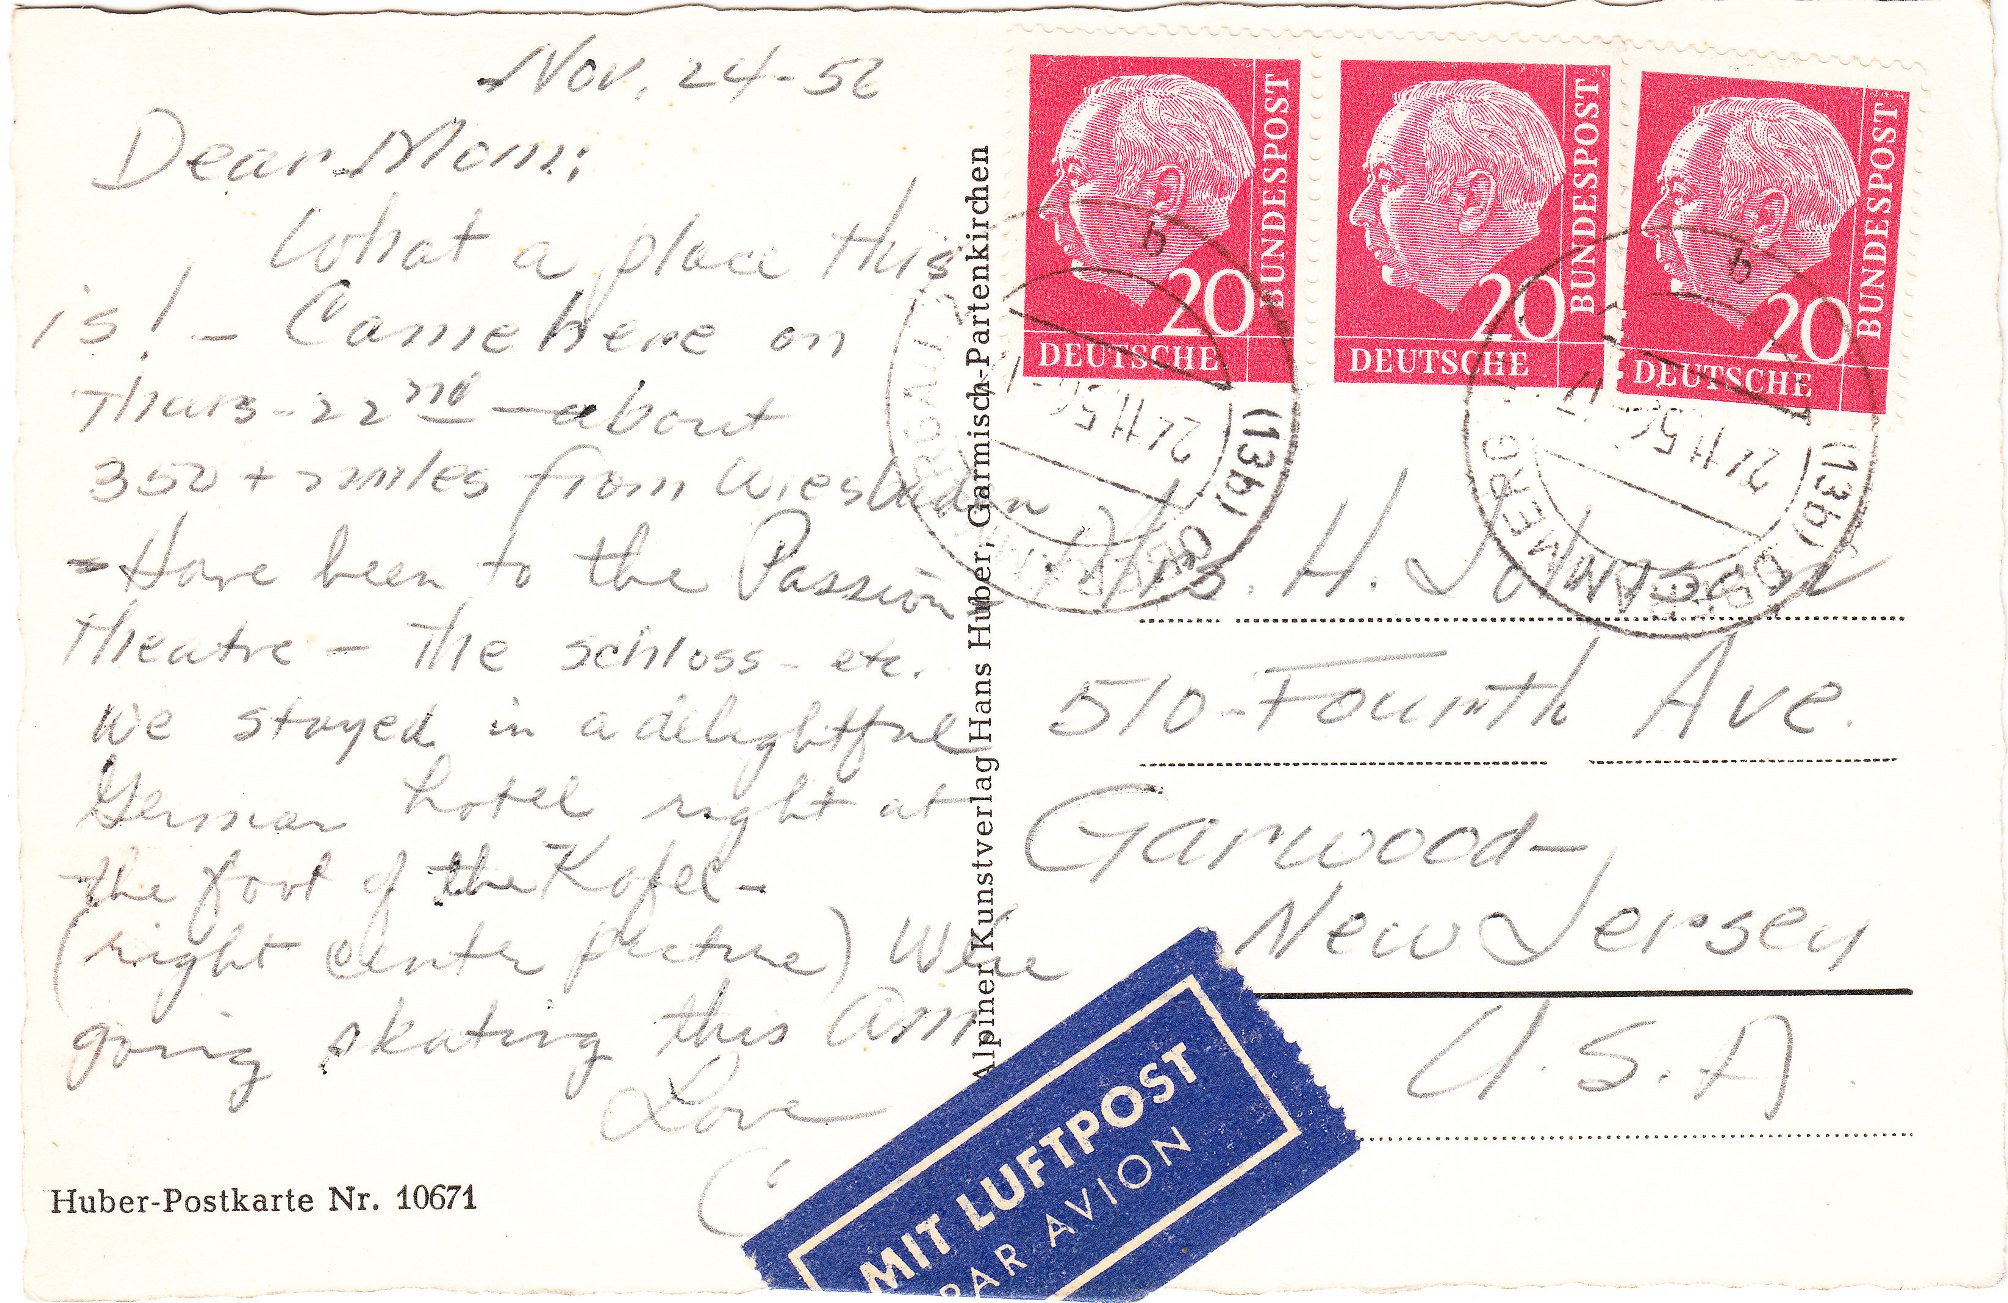 Nov. 24-56
Dear Mom:
What a place this
is! - Came here on
Thurs-22nd - about
350 + miles from Wiesbaden
- Have been to the Passion
Theatre - The schloss - etc.
We stayed in a delightful
German hotel right at
the foot of the Kofel -
(right center picture) We're
going skating this AM
Love
C
Huber-Postkarte Nr. 10671
Alpiner Kunstverlag Hans Huber, Garmisch-Partenkirchen
20 DEUTSCHE BUNDESPOST
20 DEUTSCHE BUNDESPOST
20 DEUTSCHE BUNDESPOST
(13b) OBERAMMERGAU
24.11.56
b
(13b) OBERAMMERG
24.11.56-17
b
Mrs. H. Johnson
510-Fourth Ave.
Garwood-
New Jersey
U.S.A
MIT LUFTPOST
PAR AVION